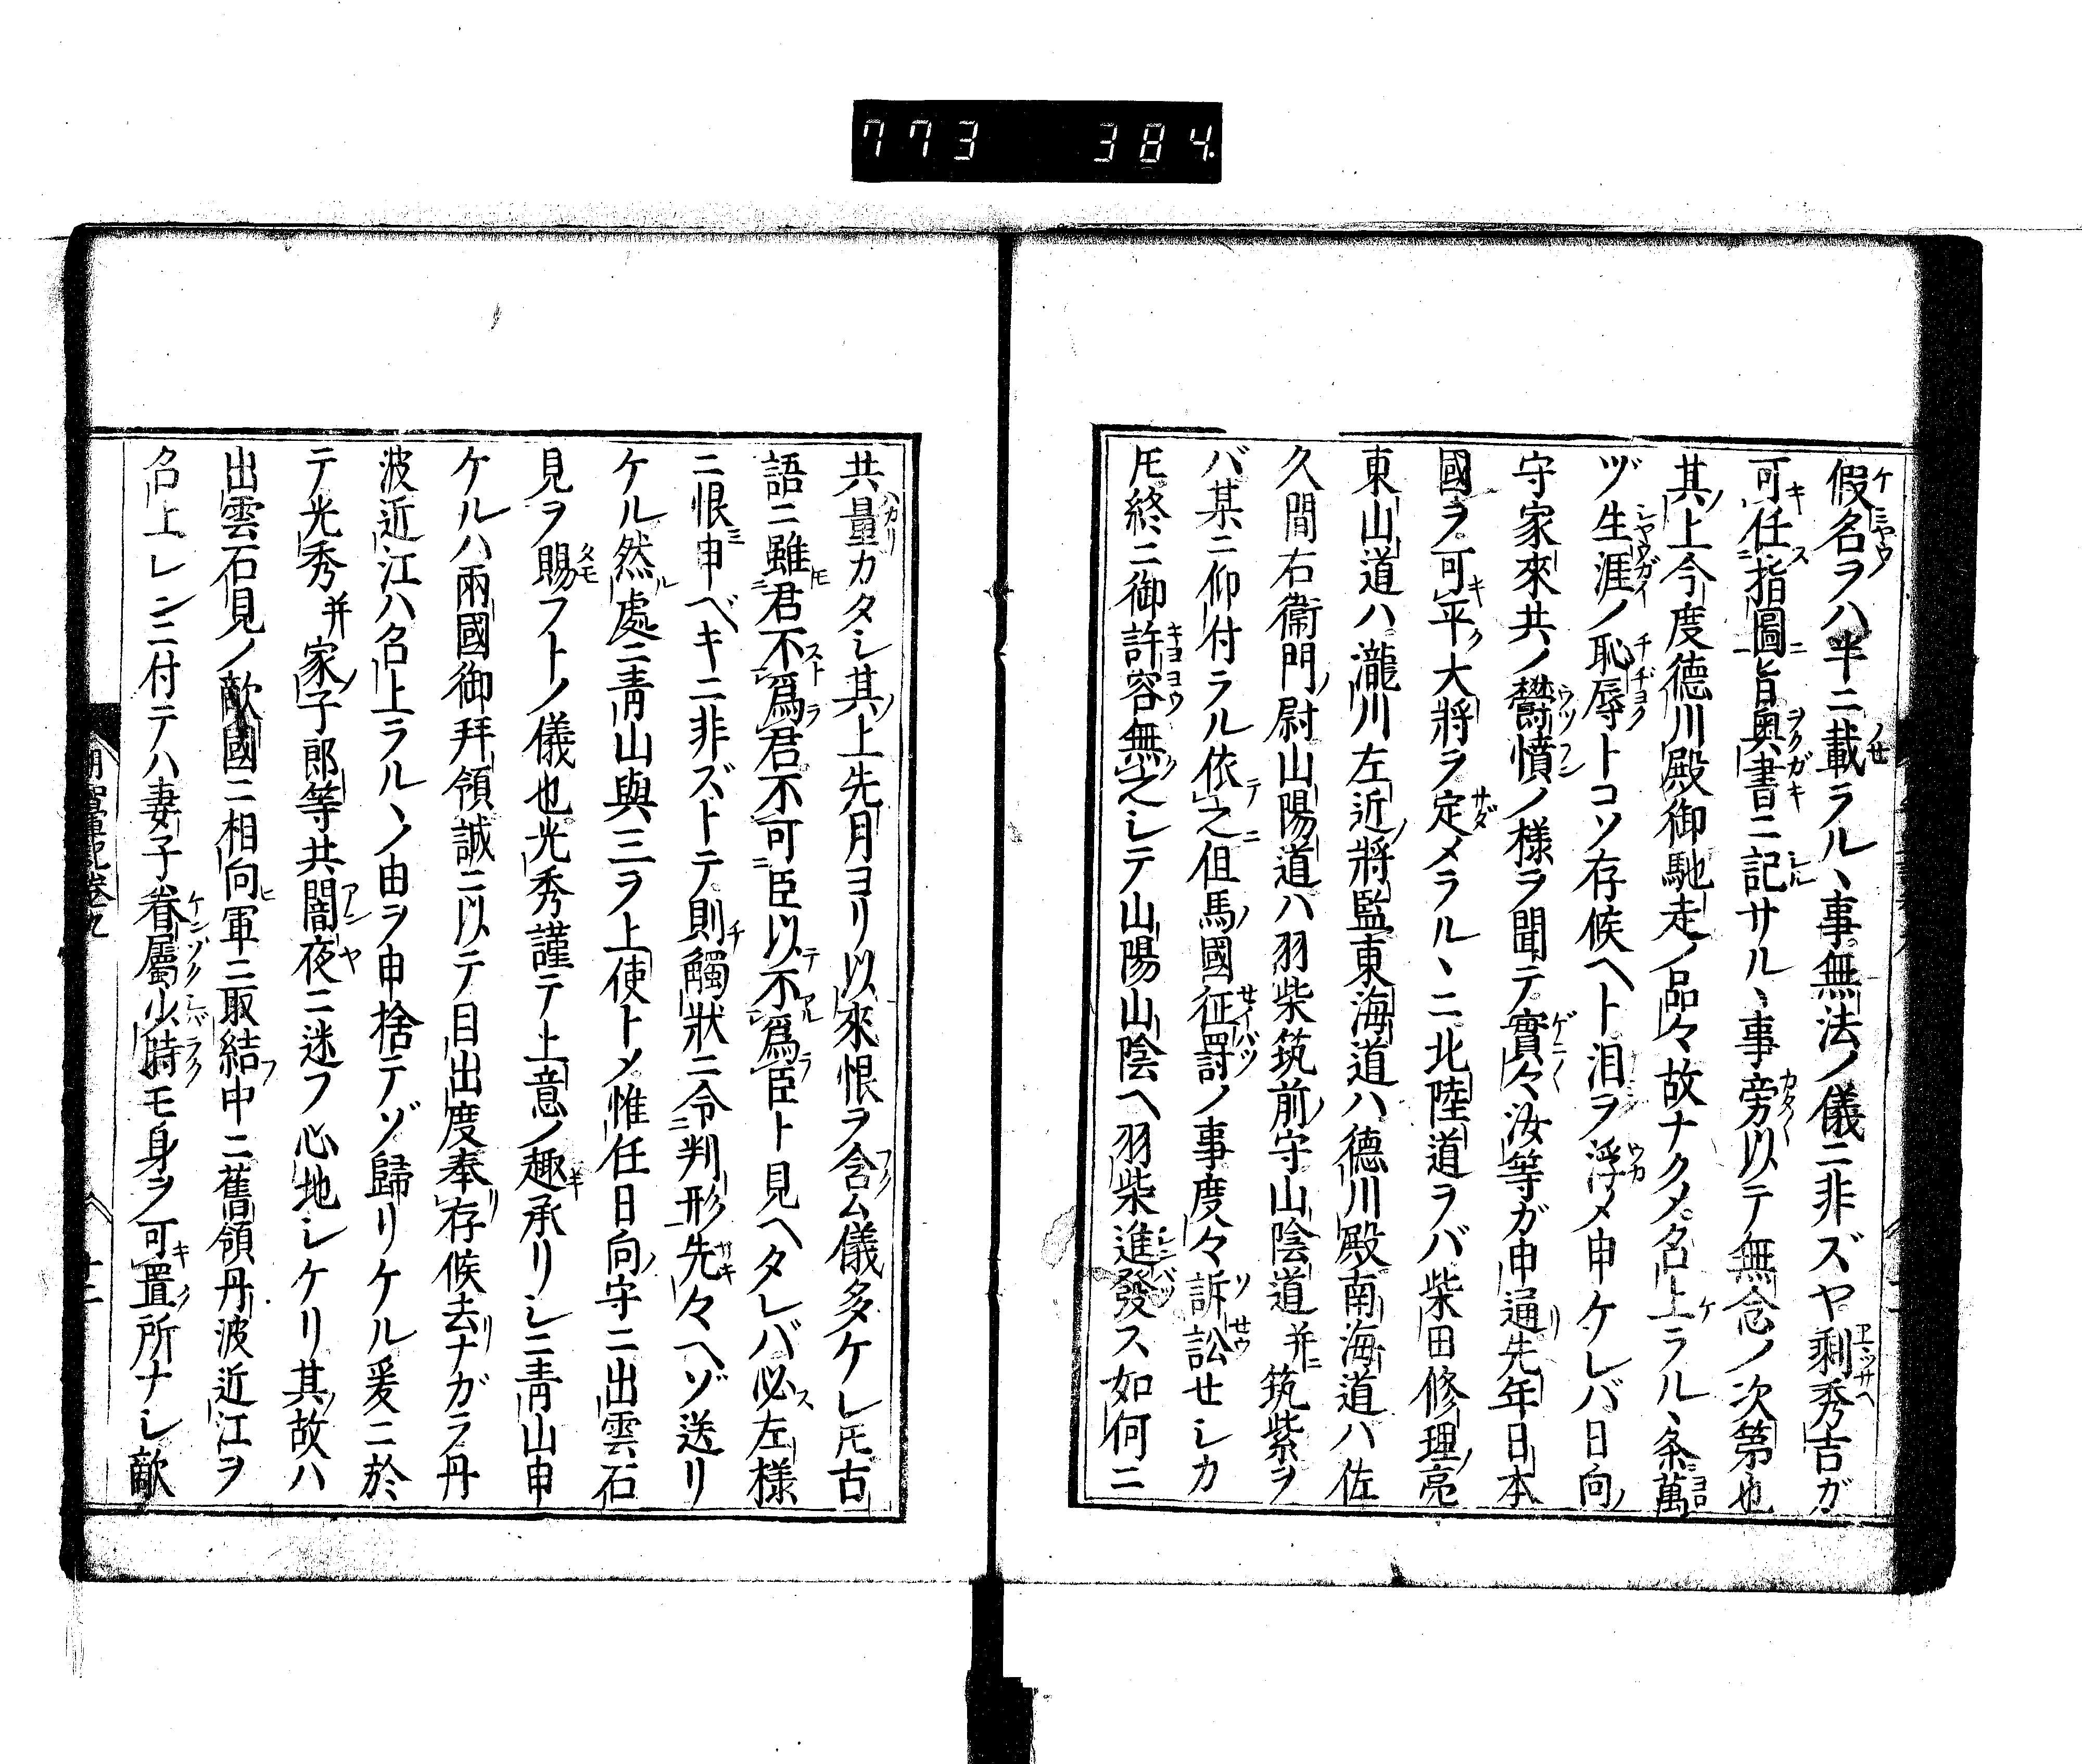 773 384
假名ヲハ半ニ載ラルヽ事無法ノ儀ニ非ズヤ剰秀吉ガ
可任指圖旨奥書ニ記サルヽ事旁以テ無念ノ次第也
其上今度德川殿御馳走ノ品々故ナクメ召上ラルヽ条萬
ヅ生涯ノ恥辱トコソ存候ヘト泪ヲ浮メ申ケレバ日向
守家來共ノ欝憤ノ様ヲ聞テ實々汝等ガ申通先年日本
國ヲ可平大將ヲ定メラルヽニ北陸道ヲバ柴田修理亮
東山道ハ瀧川左近將監東海道ハ德川殿南海道ハ佐
久間右衞門尉山陽道ハ羽柴筑前守山陰道并筑紫ヲ
バ某ニ仰付ラル依之但馬國征罸ノ事度々訴訟セシカ
𪜈終ニ御許容無之シテ山陽山陰ヘ羽柴進發ス如何ニ
共量カタシ其上先月ヨリ以來恨ヲ含ム儀多ケレ𪜈古
語ニ雖君不爲君不可臣以不爲臣ト見ヘタレバ必左様
ニ恨申ベキニ非ズトテ則觸狀ニ令判形先々ヘゾ送リ
ケル然處ニ靑山與三ヲ上使トメ惟任日向守ニ出雲石
見ヲ賜フトノ儀也光秀謹テ上意ノ趣承リシニ靑山申
ケルハ兩國御拜領誠ニ以テ目出度奉存候去ナガラ丹
波近江ハ召上ラルヽノ由ヲ申捨テゾ歸リケル爰ニ於
テ光秀并家子郎等共闇夜ニ迷フ心地シケリ其故ハ
出雲石見ノ敵國ニ相向軍ニ取結中ニ舊領丹波近江ヲ
召上レンニ付テハ妻子眷屬少時モ身ヲ可置所ナシ敵